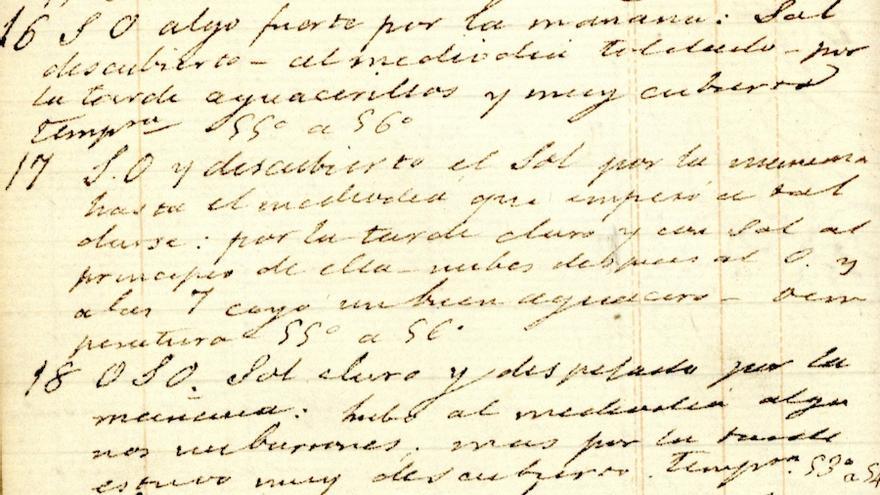 16 S O algo fuerte por la mañana: Sol
descubierto - al mediodia toldado - por
la tarde aguacerillos y muy cubierto
Tempra 55° a 56°
17 S.O y descubierto el Sol por la mañana
hasta el mediodia que empezó a tol
darse: por la tarde claro y con Sol al
principio de ella - nubes despues al O. y
a las 7 cayó un buen aguacero - tem
peratura 55° a 56°
18 O S O. Sol claro y despejado por la
mañana: hubo al mediodia algu
nos nubarrones; mas por la tarde
estuvo muy descubierto. Tempra. 53° a 54